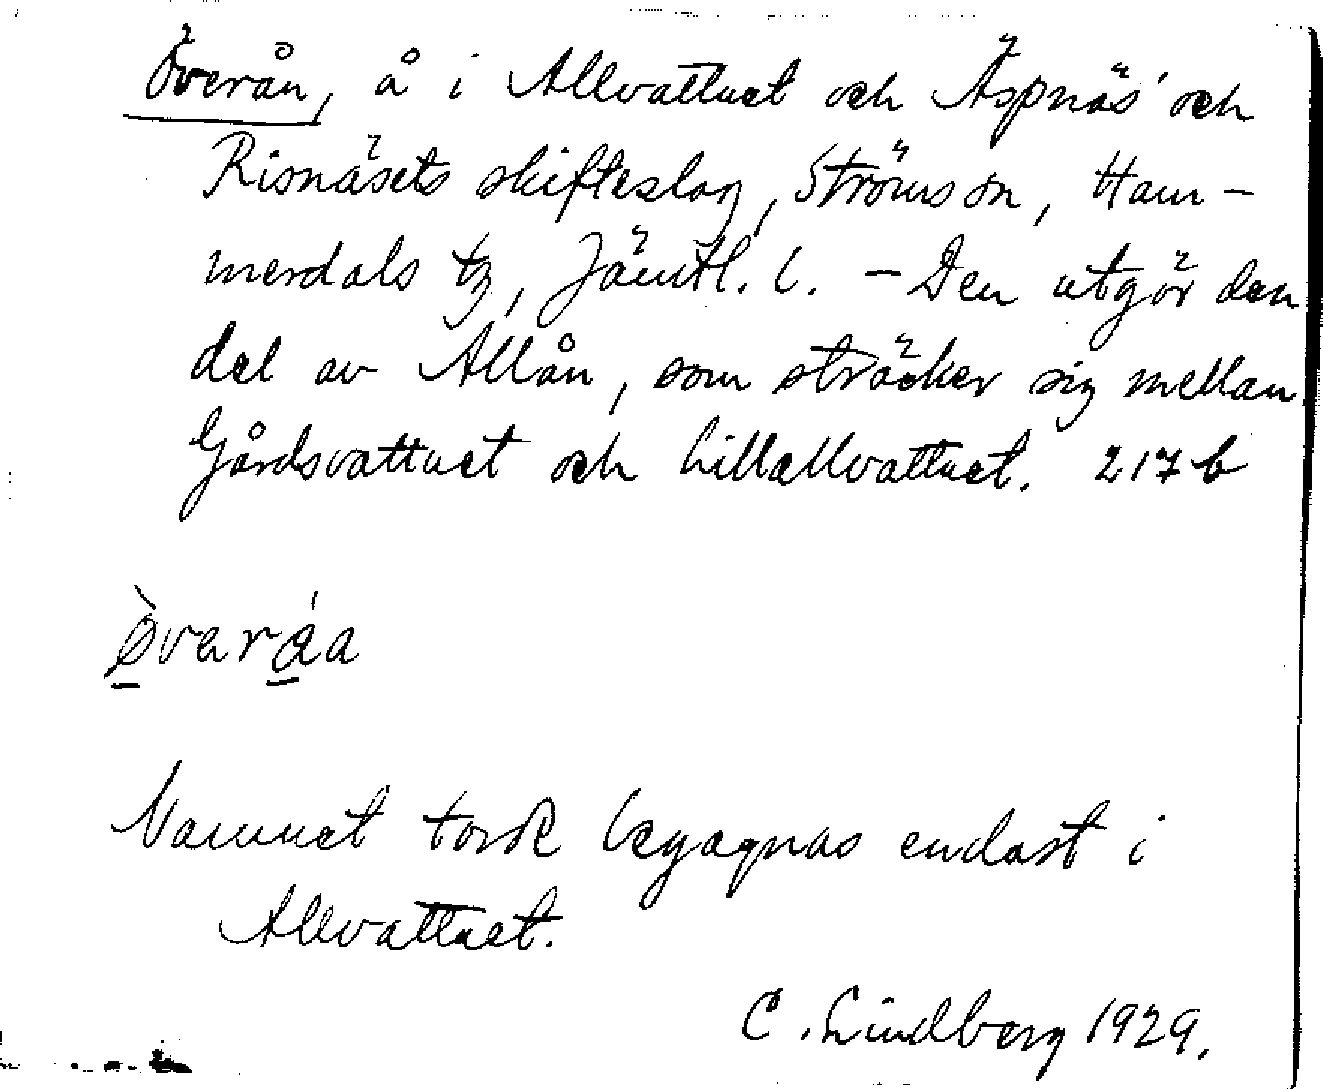 Överån, å i Allvattnet och Äspnäs' och
Risnäsets skifteslag, Ströms sn, Ham-
merdals tg, Jämtl. l. - Den utgör den
del av Allån, som sträcker sig mellan
Gårdsvattnet och Lillallvattnet. 217 b
Ø̀veráa
Namnet torde begagnas endast i
Allvattnet.
C. Lindberg 1929.